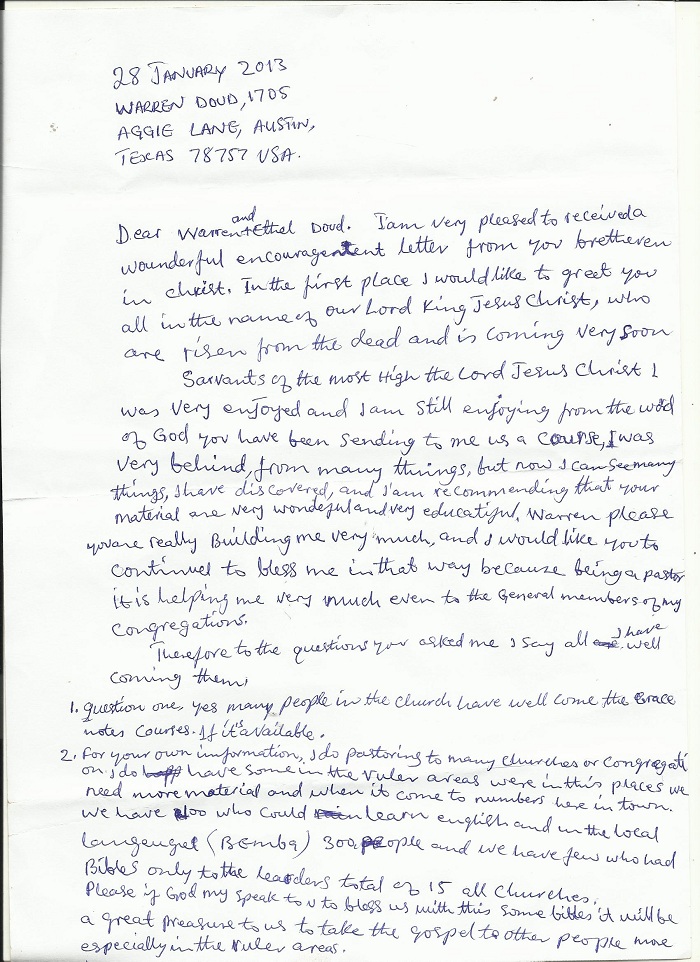 28 JANUARY 2013
WARREN DOUD, 1705
AGGIE LANE, AUSTIN,
TEXAS 78757 USA.
Dear Warren and Ethel Doud. I am very pleased to received a
wounderful encouragentent letter from you bretheren
in christ. In the first place I would like to greet you
all in the name of our Lord King Jesus Christ, who
are risen from the dead and is coming very soon
Sarvants of the most High the Lord Jesus Christ I
was very enjoyed and I am still enjoying from the word
of God you have been sending to me us a course, I was
very behind, from many things, but now I can see many
things, I have discovered, and I am recommending that your
material are very wonderful and very educatiful. Warren please
you are really Building me very much, and I would like you to
continuel to bless me in that way because being a pastor
it is helping me very much even to the General members of my
congregations.
Therefore to the questions you asked me I say all I have well
coming them,
1. Question one, yes many people in the church have well come the Grace
notes courses. If it's available.
2. For your own imformation, I do pastoring to many churches or congregati
on, I do have some in the ruler areas were in this places we
need more material and when it come to numbers here in town.
we have 100 who could learn english and in the local
langenguel (BEMBA) 300 people and we have few who had
Bibles only to the learders total of 15 all churches.
Please if God my speak to u to bless us with this some bibles it will be
a great preasure to us to take the gospel to other people more
especially in the ruler areas.